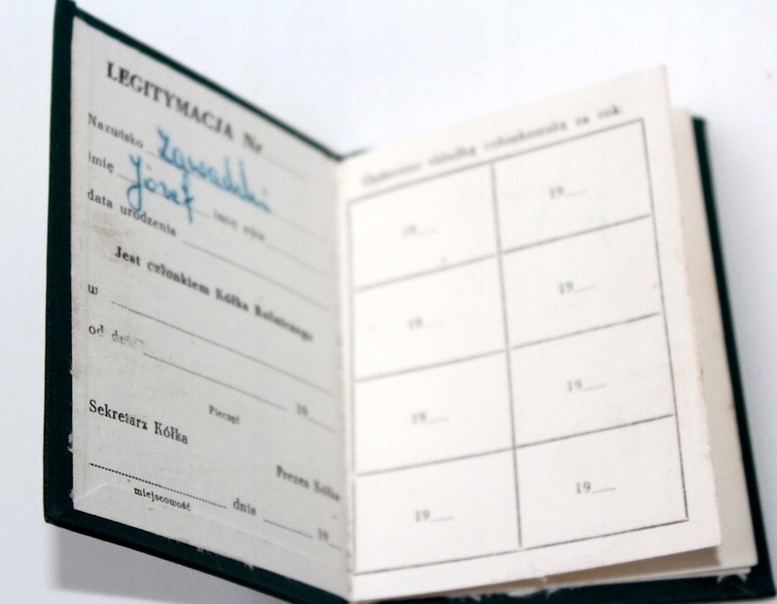 LEGITYMACJA Nr
Nazwisko Zawadzki
imię Józef imię ojca
data urodzenia
Jest członkiem Kółka Rolniczego
w
od dnia 19
Pieczęć
Sekretarz Kółka
Prezes Kółka
dnia 19
miejscowość
Opłacono składkę członkowską za rok:
19 19
19 19
19 19
19 19